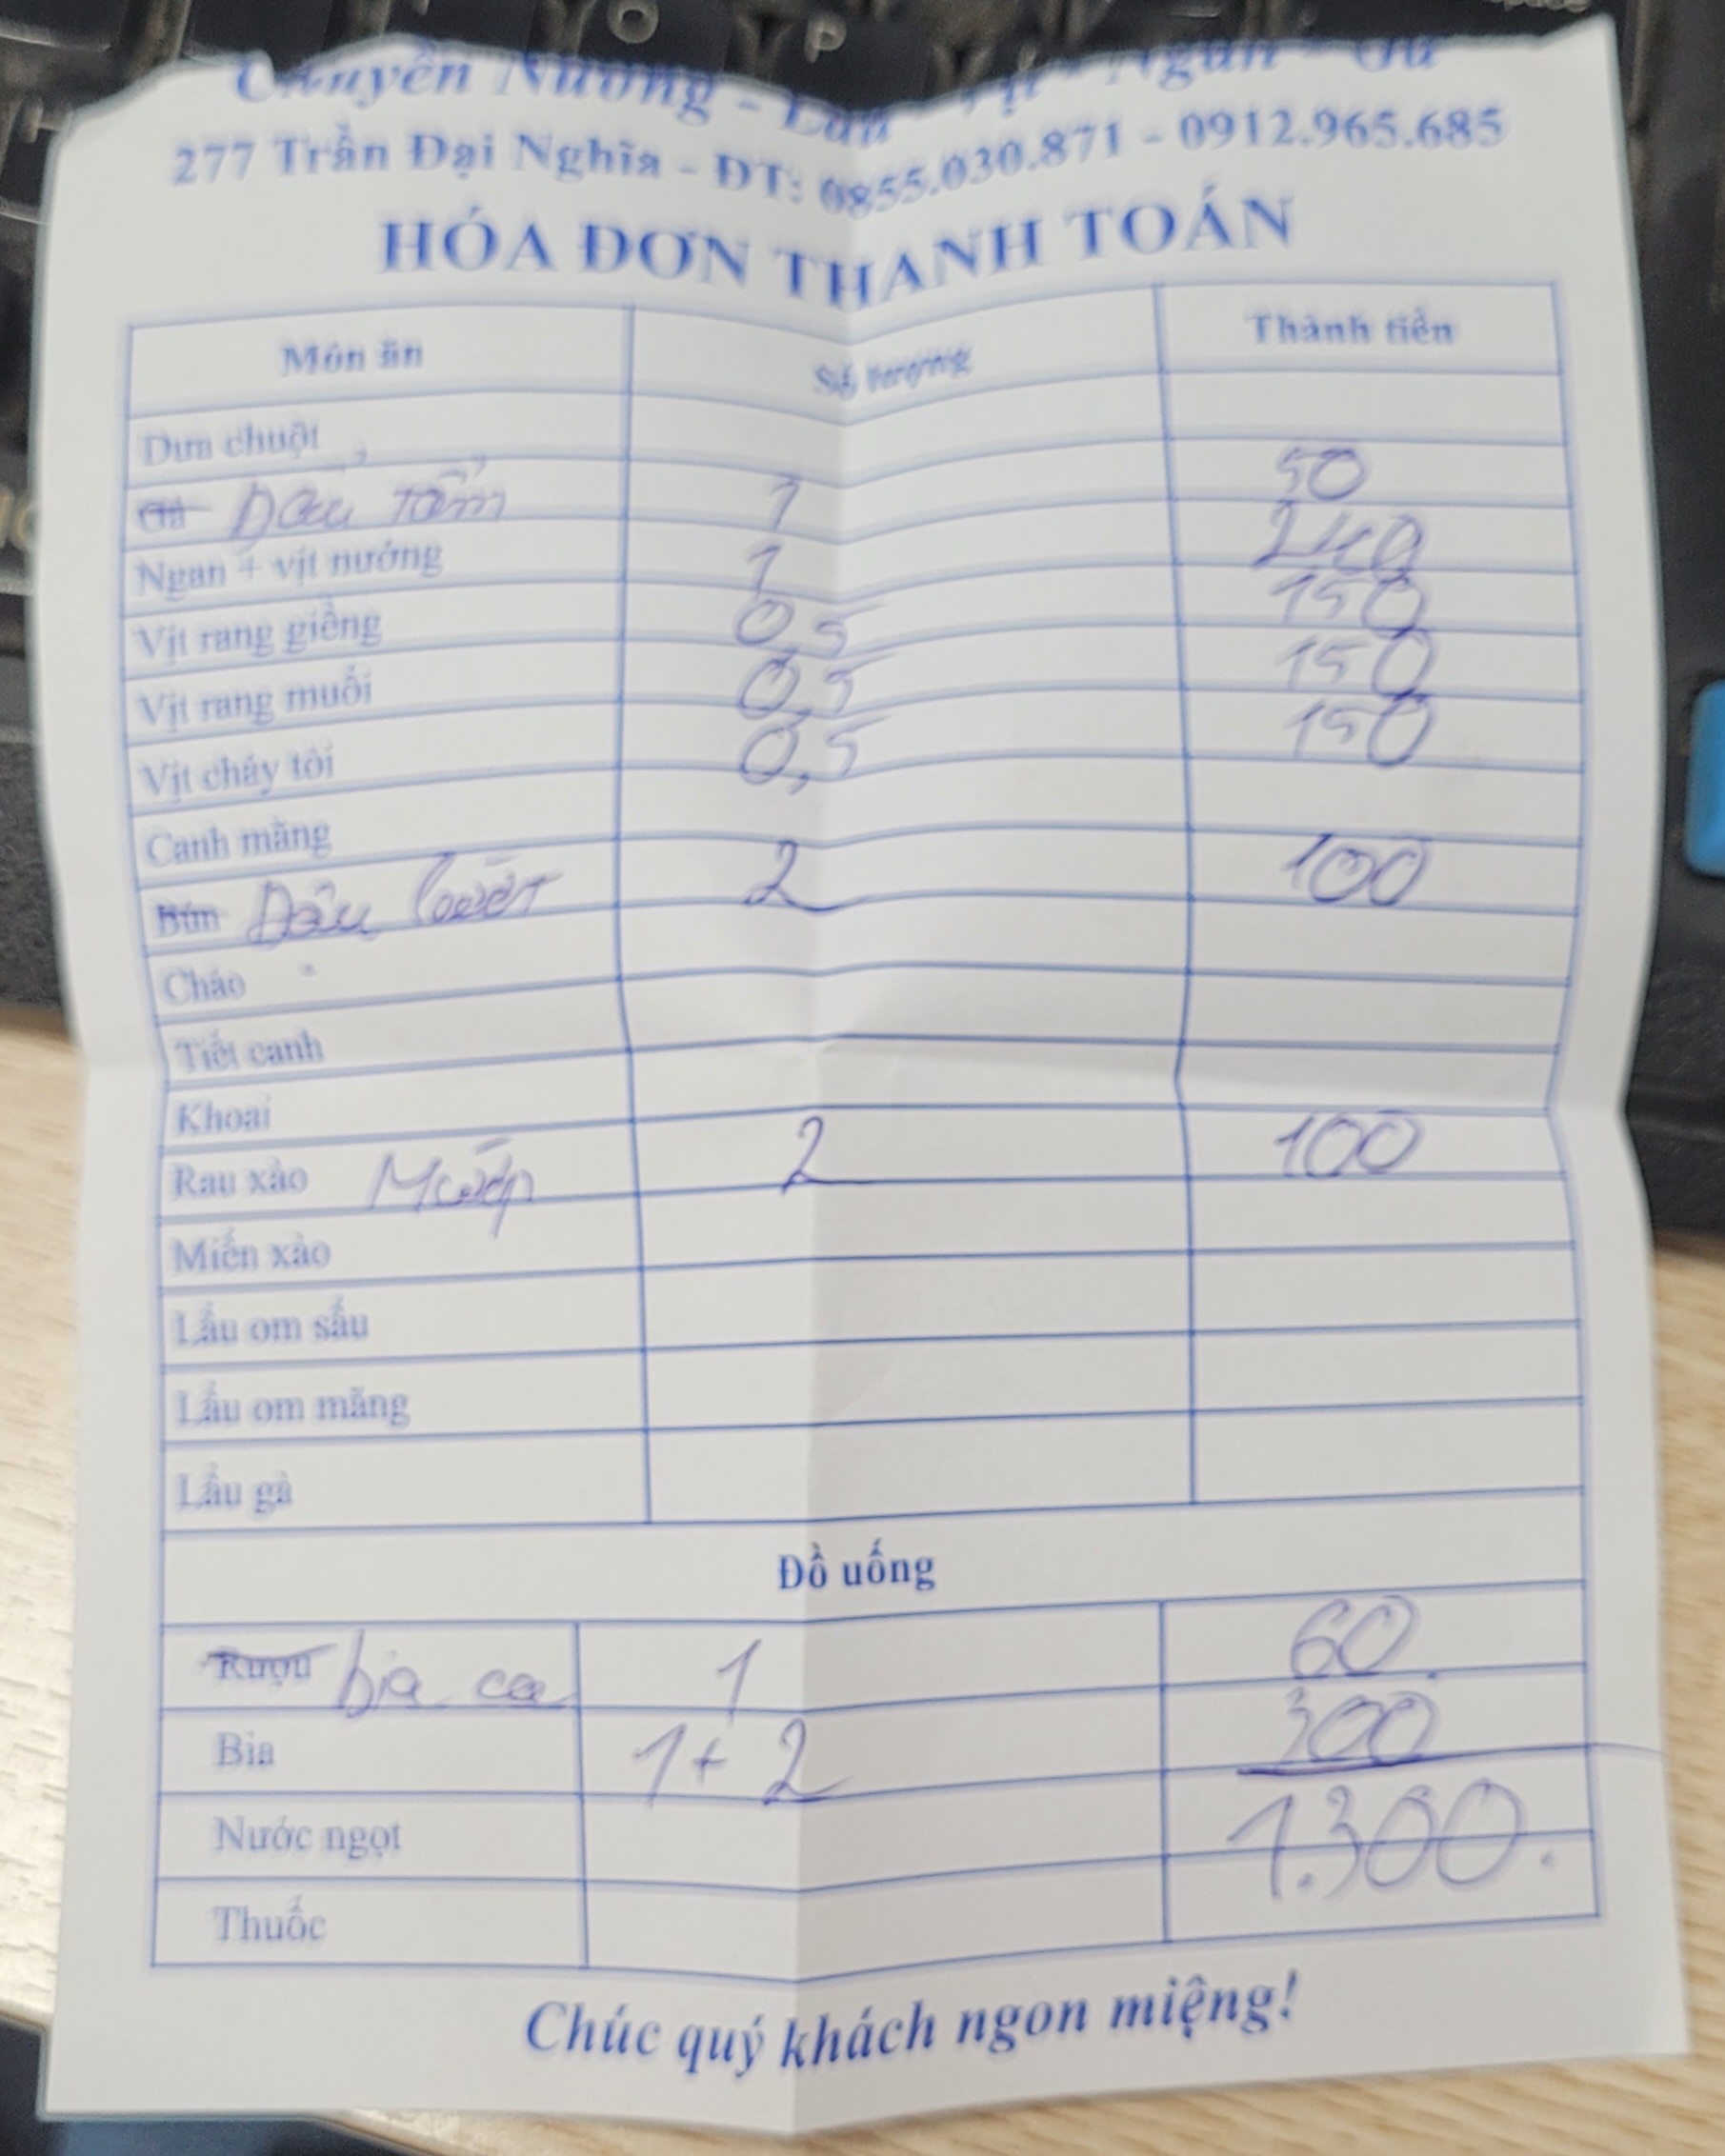 Chuyên Nướng - Lẩu - Vịt - Ngan - Gà
277 Trần Đại Nghĩa - ĐT: 0855.030.871 - 0912.965.685
HÓA ĐƠN THANH TOÁN
Món ăn Số lượng Thành tiền
Dưa chuột
Gà Đậu tẩm 1 50
Ngan + vịt nướng 1 240
Vịt rang giềng 0,5 150
Vịt rang muối 0,5 150
Vịt cháy tỏi 0,5 150
Canh măng
Bún Đậu lướt 2 100
Cháo
Tiết canh
Khoai
Rau xào Mướp 2 100
Miến xào
Lẩu om sấu
Lẩu om măng
Lẩu gà
Đồ uống
Rượu bia ca 1 60.
Bia 1+2 300
Nước ngọt 1.300.
Thuốc
Chúc quý khách ngon miệng!